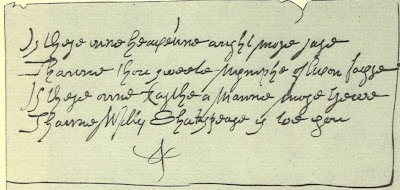 Is there inne heavenne aught more rare
Thanne thou sweete Nymphe of Avon fayre
Is there onne Earthe a Manne more trewe
Thanne Willy Shakspeare is toe you